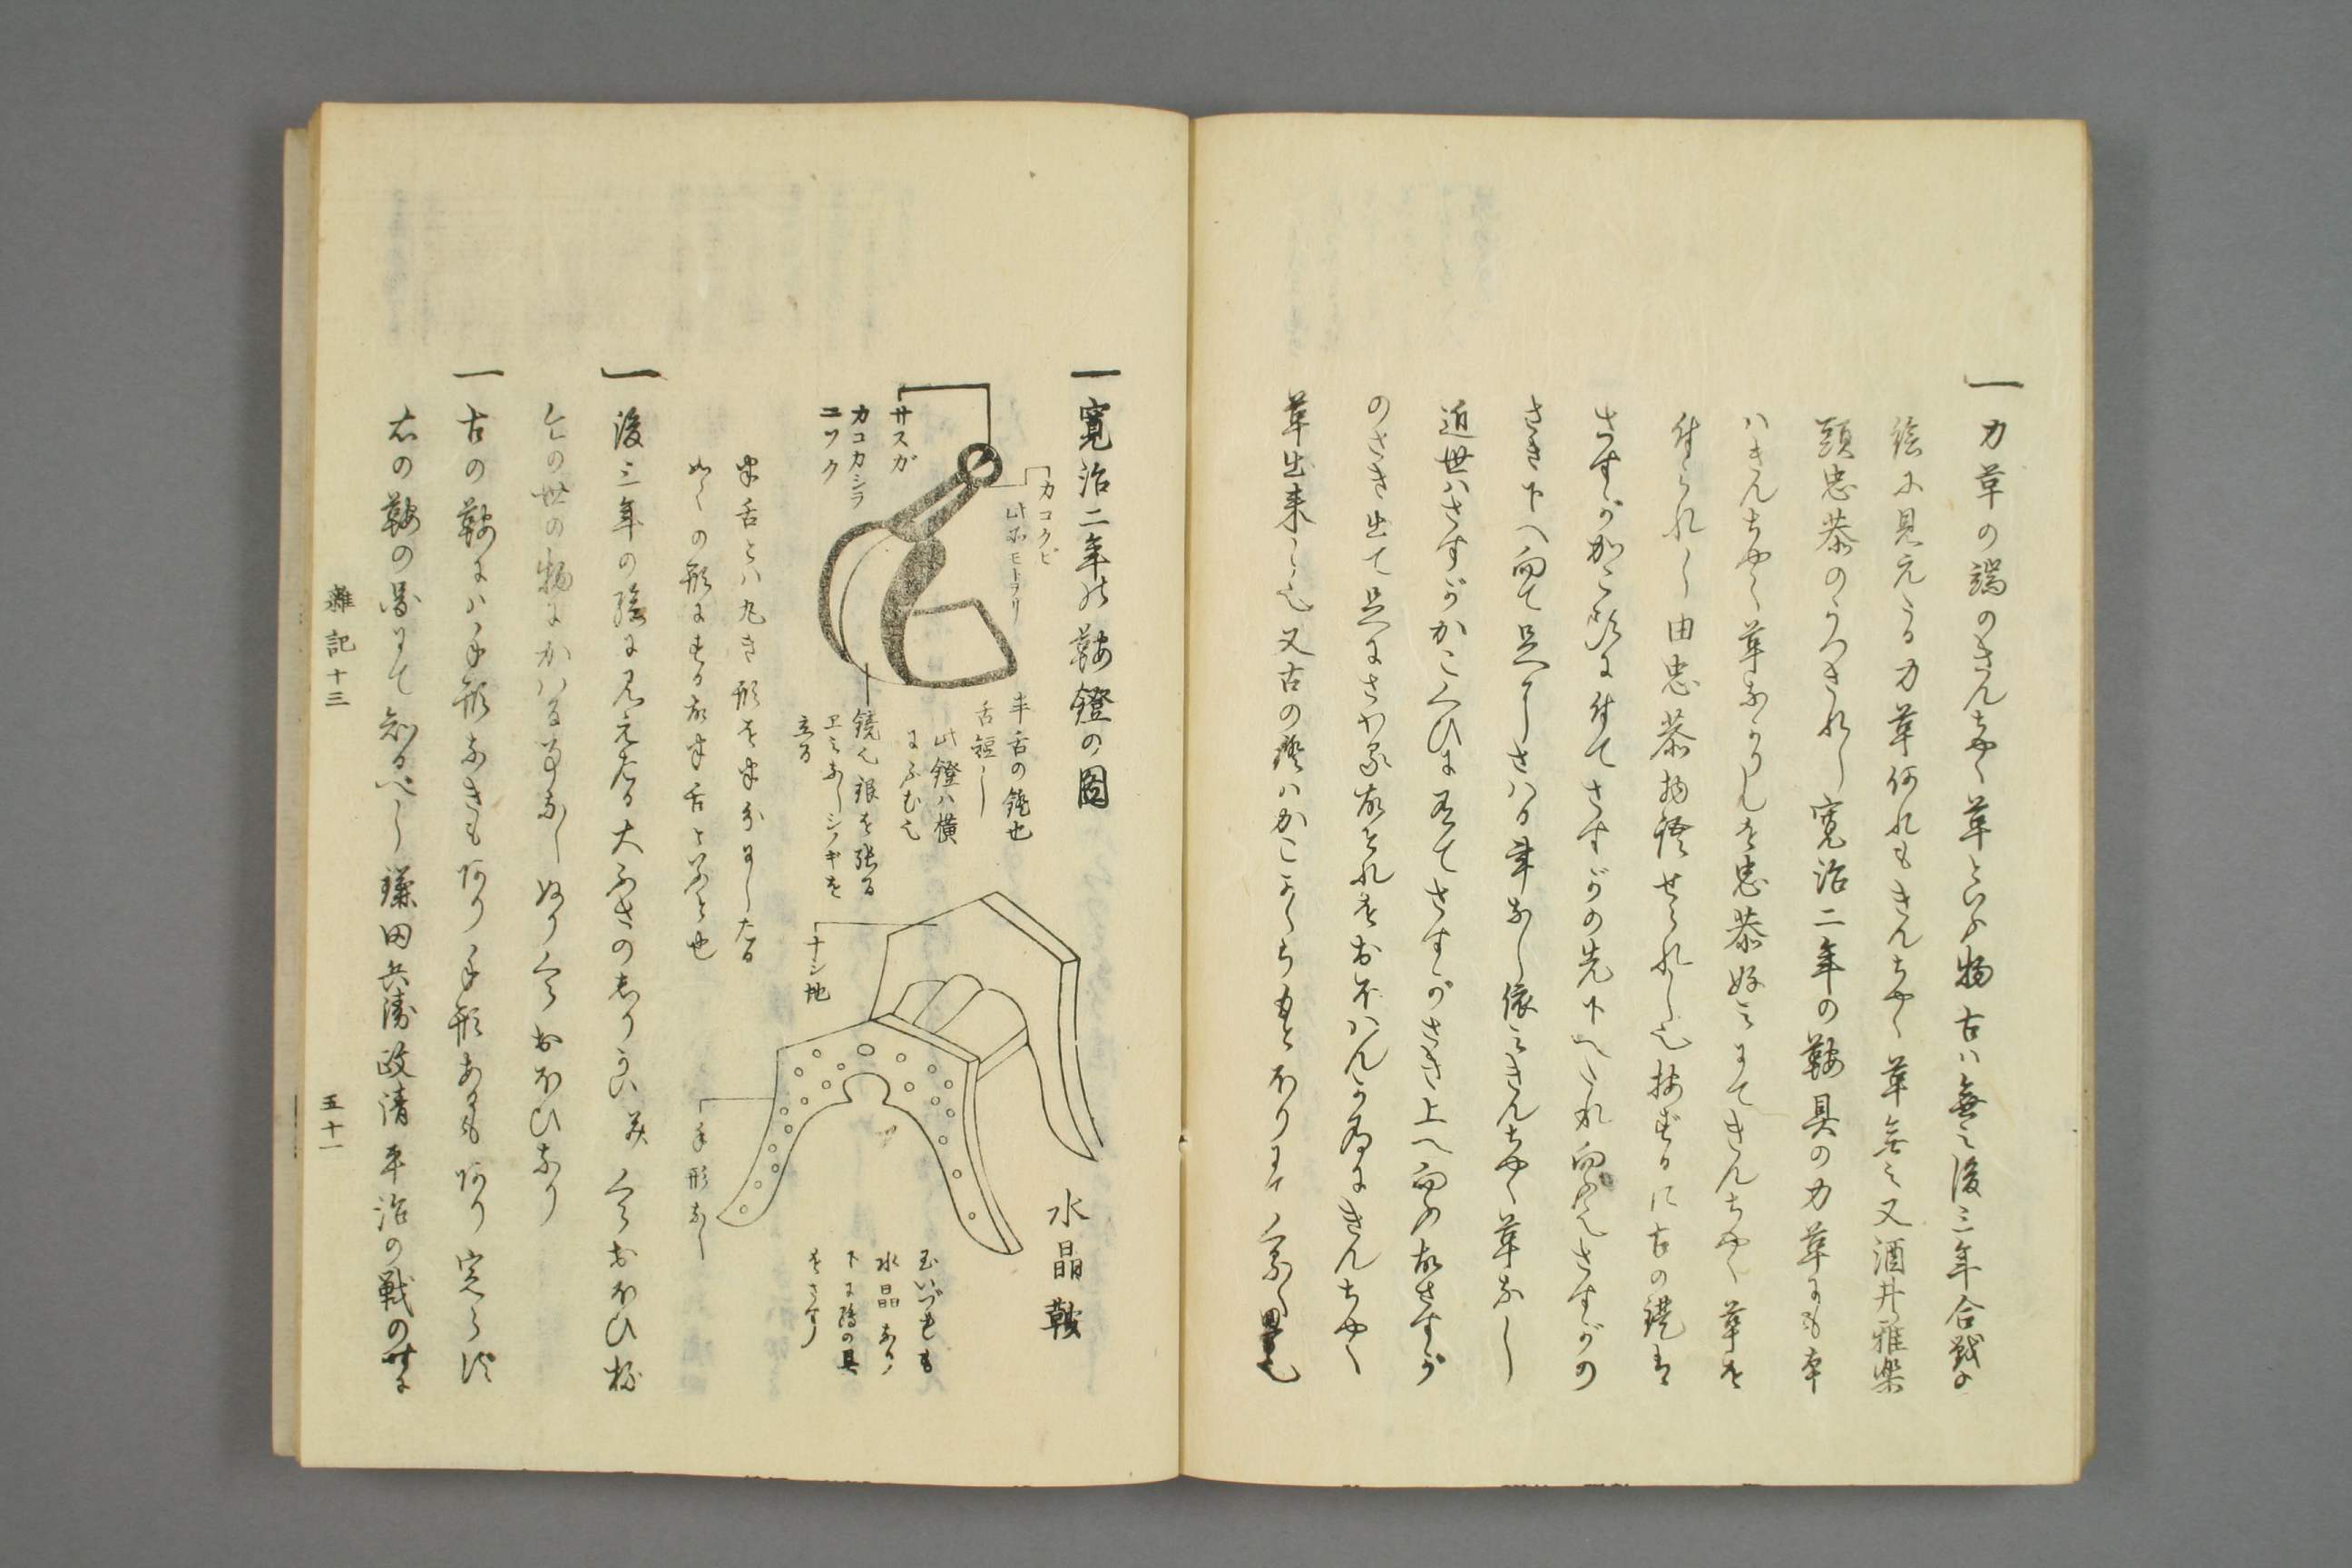 一 力革の端のきんちやく革といふ物古ハ無之後三年合戦の
絵に見えたる力革何れもきんちやく革無之又酒井雅楽
頭忠恭のうつされし寛治二年の鞍具の力革にも本
ハきんちやく革なかりしを忠恭好ミにてきんちやく革を
付られし由忠恭物語せられし也按ずるに古の鐙は
さすがかこ頭に付てさすがの先下へたれ向ふ也さすがの
さき下へ向て足へさはる事なし依之きんちやく革なし
近世ハさすがかこくひに有てさすがさき上へ向ふ故さすが
のさき出て足にさハる故それをおほハんためにきんちやく
革出来し也又古の鐙ハかこ
一 寛治二年の鞍鐙の図
カコクビ
此所モトヲリ
サスガ
カコカシラ
ニツク
半舌の鐙也
舌短し
此鐙ハ横
にふむ也
鏡も銀を張る
スミなしシノギを
立る
半舌とハ丸き形を半分にしたる
如くの形にする故半舌と云と也
水晶鞍
ナシ地
手形なし
玉いづれも
水晶なり
下に
をさす
一 後三年の絵に見えたる大ふさのしりかい
今の世の物にかハる事なし
一 古の鞍にハ手形なきもあり手形あるもあり定らず
右の鞍の図にて知るべし鎌田兵衛政清平治の戦の時に
雑記十三
五十一